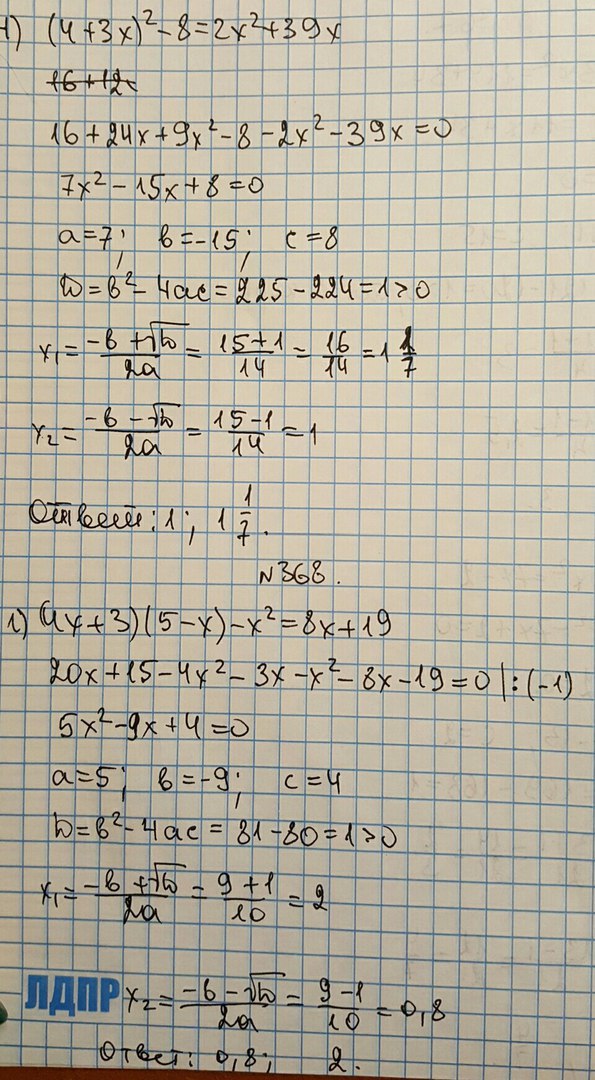 1) (4+3x)²-8=2x²+39x
16+12x
16+24x+9x²-8-2x²-39x=0
7x²-15x+8=0
a=7; b=-15; c=8
D=b²-4ac=225-224=1>0
x₁=(-b+√D)/2a=(15+1)/14=16/14=1 1/7
x₂=(-b-√D)/2a=(15-1)/14=1
Ответ: 1; 1 1/7.
№368.
1) (4x+3)(5-x)-x²=8x+19
20x+15-4x²-3x-x²-8x-19=0|:(-1)
5x²-9x+4=0
a=5; b=-9; c=4
D=b²-4ac=81-80=1>0
x₁=(-b+√D)/2a=(9+1)/10=2
ЛДПР x₂=(-b-√D)/2a=(9-1)/10=0,8
Ответ: 0,8; 2.